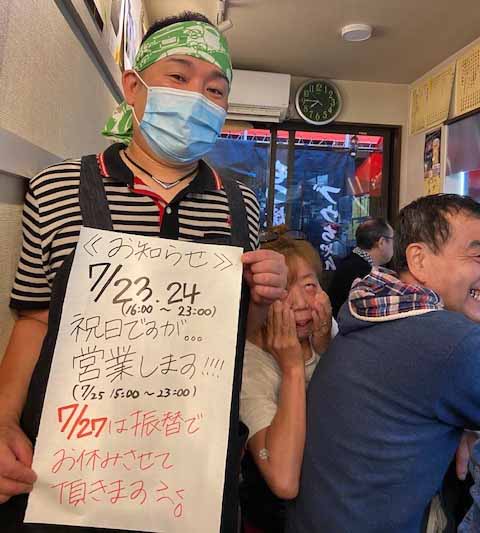 ≪お知らせ≫
7/23.24
(16:00 ～ 23:00)
祝日ですが...
営業します!!!!
(7/25 15:00 ～ 23:00)
7/27は振替で
お休みさせて
頂きます